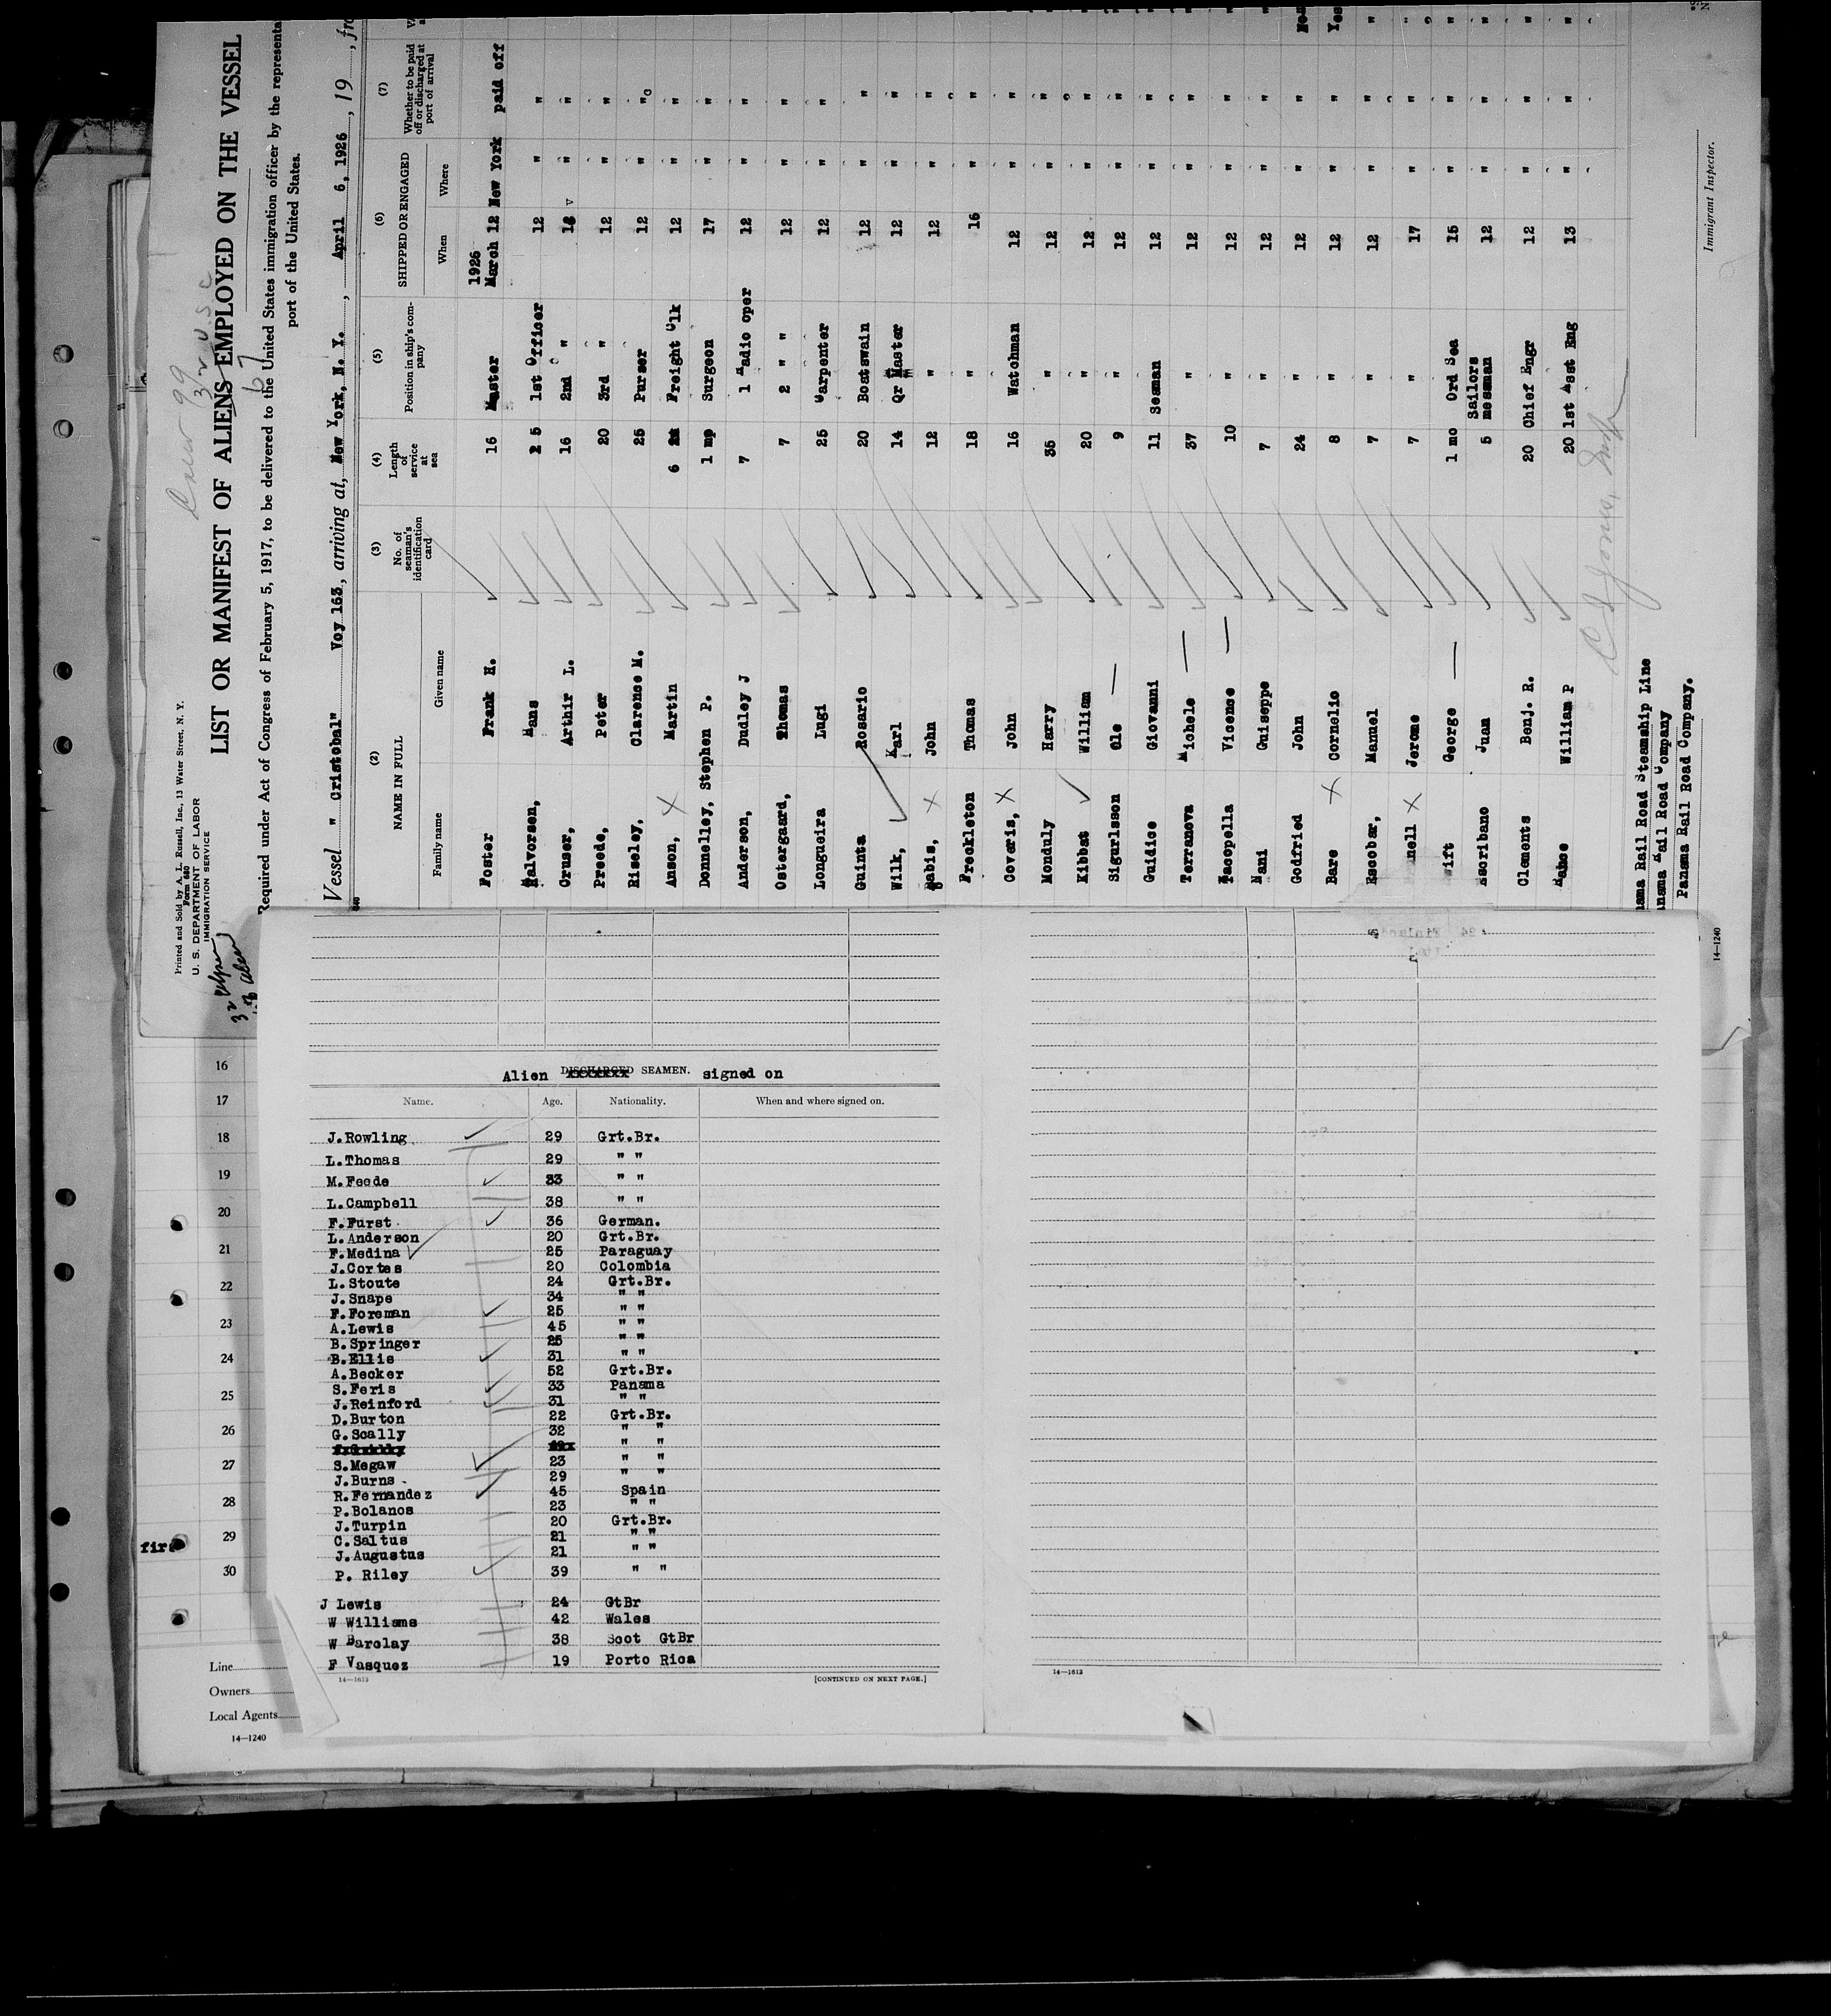 Printed and Sold by A. L. Russell, Inc., 13 Water Street, N. Y.
Form 680
U. S. DEPARTMENT OF LABOR
IMMIGRATION SERVICE
LIST OR MANIFEST OF ALIENS EMPLOYED ON THE VESSEL
Required under Act of Congress of February 5, 1917, to be delivered to the United States immigration officer by the representa
port of the United States.
Vessel " Cristobal" Voy 163, arriving at, New York, N. Y. , April 6, 1926 , 19 , fro
(2) (3) (4) (5) (6) (7)
NAME IN FULL
Family name Given name
No. of seaman's identification card
Length of service at sea
Position in ship's company
SHIPPED OR ENGAGED
When Where
Whether to be paid off or discharged at port of arrival
1926
Foster Frank H. 16 Master March 12 New York paid off
Halvorsen, Hans 25 1st Officer 12 " "
Cruser, Arthir L. 16 2nd " 12 " "
Preede, Peter 20 3rd " 12 " "
Riseley, Clarence M. 25 Purser 12 " "
Anson, Martin 6 Freight Clk 12 " "
Donnelley, Stephen P. 1 mo Surgeon 17 " "
Anderson, Dudley J 7 1 Radio oper 12 " "
Ostergaard, Thomas 7 2 " " 12 " "
Longueira Lugi 25 Carpenter 12 " "
Guinta Rosario 20 Boatswain 12 " "
Wilk, Karl 14 Qr Master 12 " "
Babis, John 12 " 12 " "
Freckleton Thomas 18 " 16 " "
Coveris, John 16 Watchman 12 " "
Monduly Harry 35 " 12 " "
Kibbat William 20 " 12 " "
Sigurlsson Ole 9 " 12 " "
Guidice Giovanni 11 Seaman 12 " "
Terranova Michele 37 " 12 " "
Iacopella Vicence 10 " 12 " "
Nani Guiseppe 7 " 12 " "
Godfried John 24 " 12 " " No
Bare Cornelio 8 " 12 " " Yes
Escobar, Manuel 7 " 12 " " "
nell Jerome 7 " 17 " " "
wift George 1 mo Ord Sea 15 " " "
Ascribano Juan 5 Sailors messman 12 " " "
Clements Benj. R. 20 Chief Engr 12 " " "
Mahoe William P 20 1st Asst Eng 13 " " "
nama Rail Road Steamship Line
nama Rail Road Company
Panama Rail Road Company.
Immigrant Inspector.
14—1240
16
17
18
19
20
21
22
23
24
25
26
27
28
29
30
Line
Owners
Local Agents
14—1240
Alien DISCHARGED SEAMEN. signed on
Name. Age. Nationality. When and where signed on.
J.Rowling 29 Grt.Br.
L.Thomas 29 " "
M.Feede 33 " "
L.Campbell 38 " "
F.Furst 36 German.
L.Anderson 20 Grt.Br.
F.Medina 25 Paraguay
J.Cortes 20 Colombia
L.Stoute 24 Grt.Br.
J.Snape 34 " "
F.Foreman 25 " "
A.Lewis 45 " "
B.Springer 25 " "
B.Ellis 31 " "
A.Becker 52 Grt.Br.
S.Feris 33 Panama
J.Reinford 31 " "
D.Burton 22 Grt.Br.
G.Scally 32 " "
" "
S.Megaw 23 " "
J.Burns 29 " "
R.Fernandez 45 Spain
P.Bolanos 23 " "
J.Turpin 20 Grt.Br.
C.Saltus 21 " "
J.Augustus 21 " "
P. Riley 39 " "
J Lewis 24 GtBr
W Williams 42 Wales
W Barclay 38 Scot GtBr
F Vasquez 19 Porto Rica
14—1613 [CONTINUED ON NEXT PAGE.]
14—1613